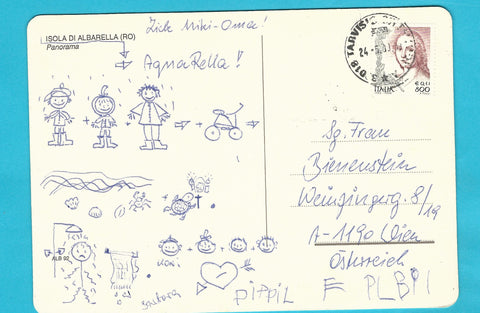 Zick Miki-Oma!
ISOLA DI ALBARELLA (RO)
Panorama
AquaRella!!
018 TARVISIO
24-
ITALIA
800
Sg. Frau
Bienenstein
Weinzingerg. 8/19
A-1190 Wien
Österreich
ALB 92
pitpil
F PLBPI